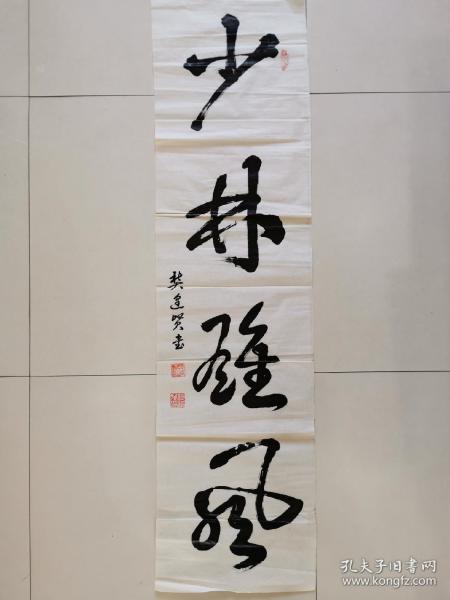 少林雄风
樊逢贤书
孔夫子旧书网
www.kongfz.com